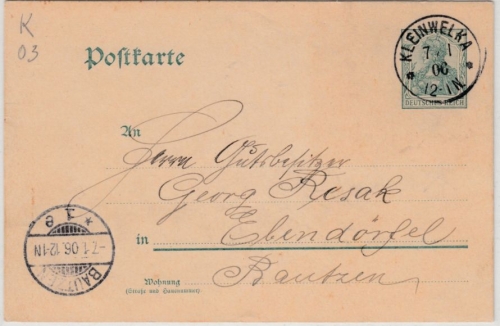 K
03
Postkarte
KLEINWELKA
7 1
06
* 12-1N. *
DEUTSCHES REICH
An
Herrn Gutsbesitzer
Georg Resak
in Ebendörfel
Bautzen
Wohnung
(Straße und Hausnummer)
BAUTZEN
-7.1.06.12-1N
* 1 e